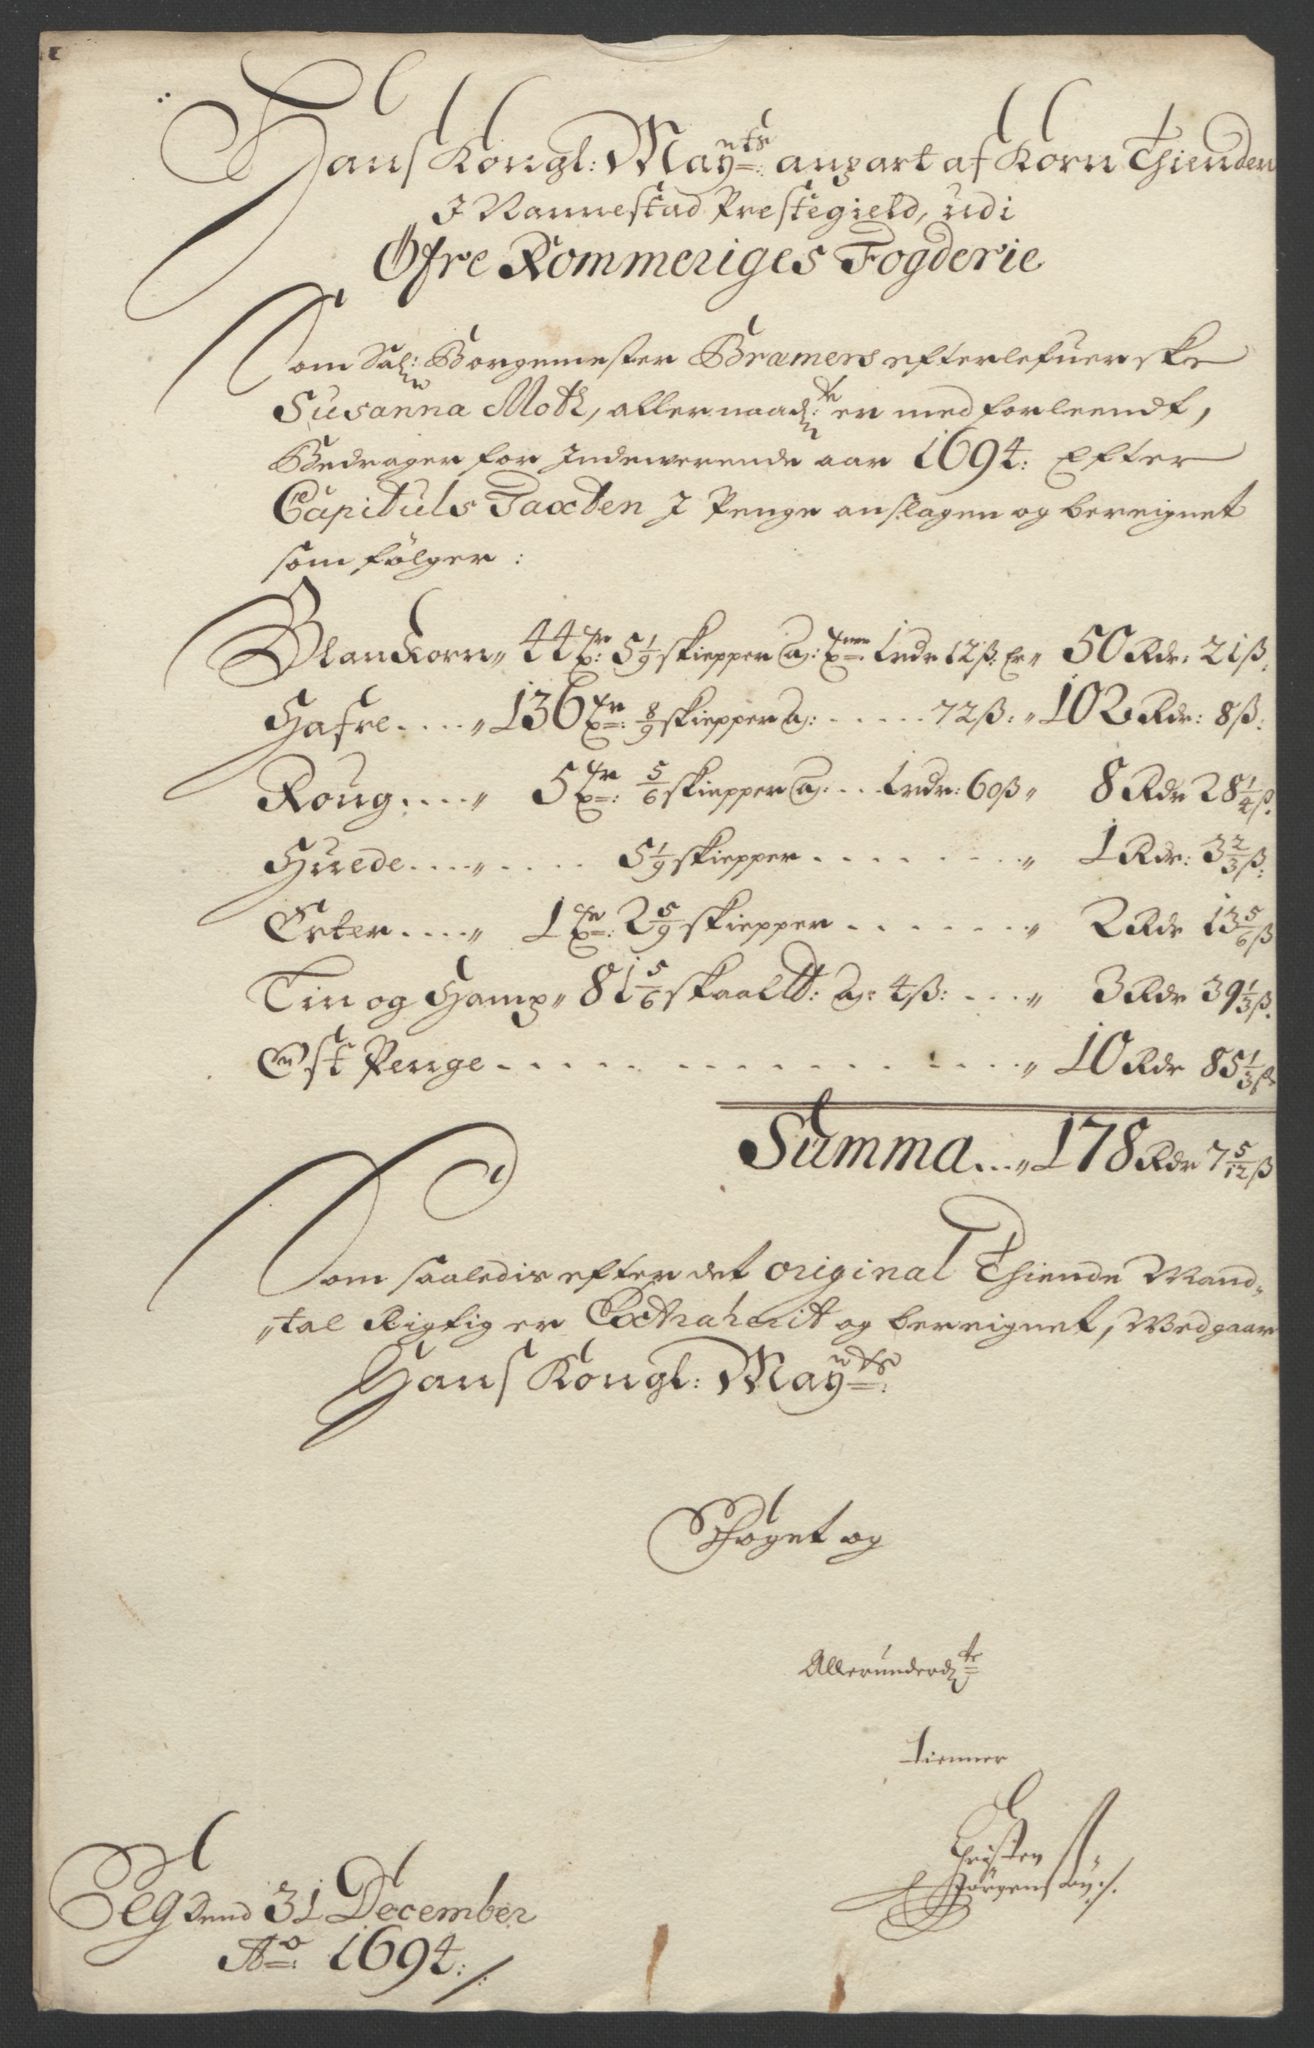 Hans Kongl: Mayts: anpart af Korn Thienden
I Nannestad Prestegield, udi
Øfre Rommeriges Fogderie
Som Sal: Borgemester Bramers efterlefuerske
Susanna Moth, allernaadte er med forleendt,
Bedrager for Indewerende aar 1694: Efter
Capituls Taxten I Penge anslagen og bereignet
som følger:
Blankorn „ 44 Tr: 5 1/9 skiepper a: Tnn: 1 rdr 12 ß. Er „ 50 Rdr: 21 ß.
Hafre .... „ 136 Tr: 8/9 skiepper a: ...... 72 ß: „ 102 Rdr: 8 ß:
Roug .... „ 5 Tr: 5/6 skiepper a: ... 1 rdr: 60 ß „ 8 Rdr 28 1/4 ß.
Huede .... „ .... 5 1/9 skiepper ........ „ 1 Rdr: 3 2/3 ß:
Erter .... „ 1 Tr: 2 5/9 skiepper ....... „ 2 Rdr 13 5/6 ß
Lin og Hamp „ 81 5/6 skaalt: a: 4 ß: .... „ 3 Rdr 39 1/3 ß.
Ost Penge .............. „ 10 Rdr 85 1/3 ß
Summa ... „ 178 Rdr 7 5/12 ß
Som saaledis efter det original Thiende Mand-
„tal Rigtig er Extraherit og bereignet, Vedgaar
Hans Kongl: Mayts:
Foget og
Allerunderdte
tienner
Christen
Jørgensøn
Teg dend 31 December
Ao: 1694:/